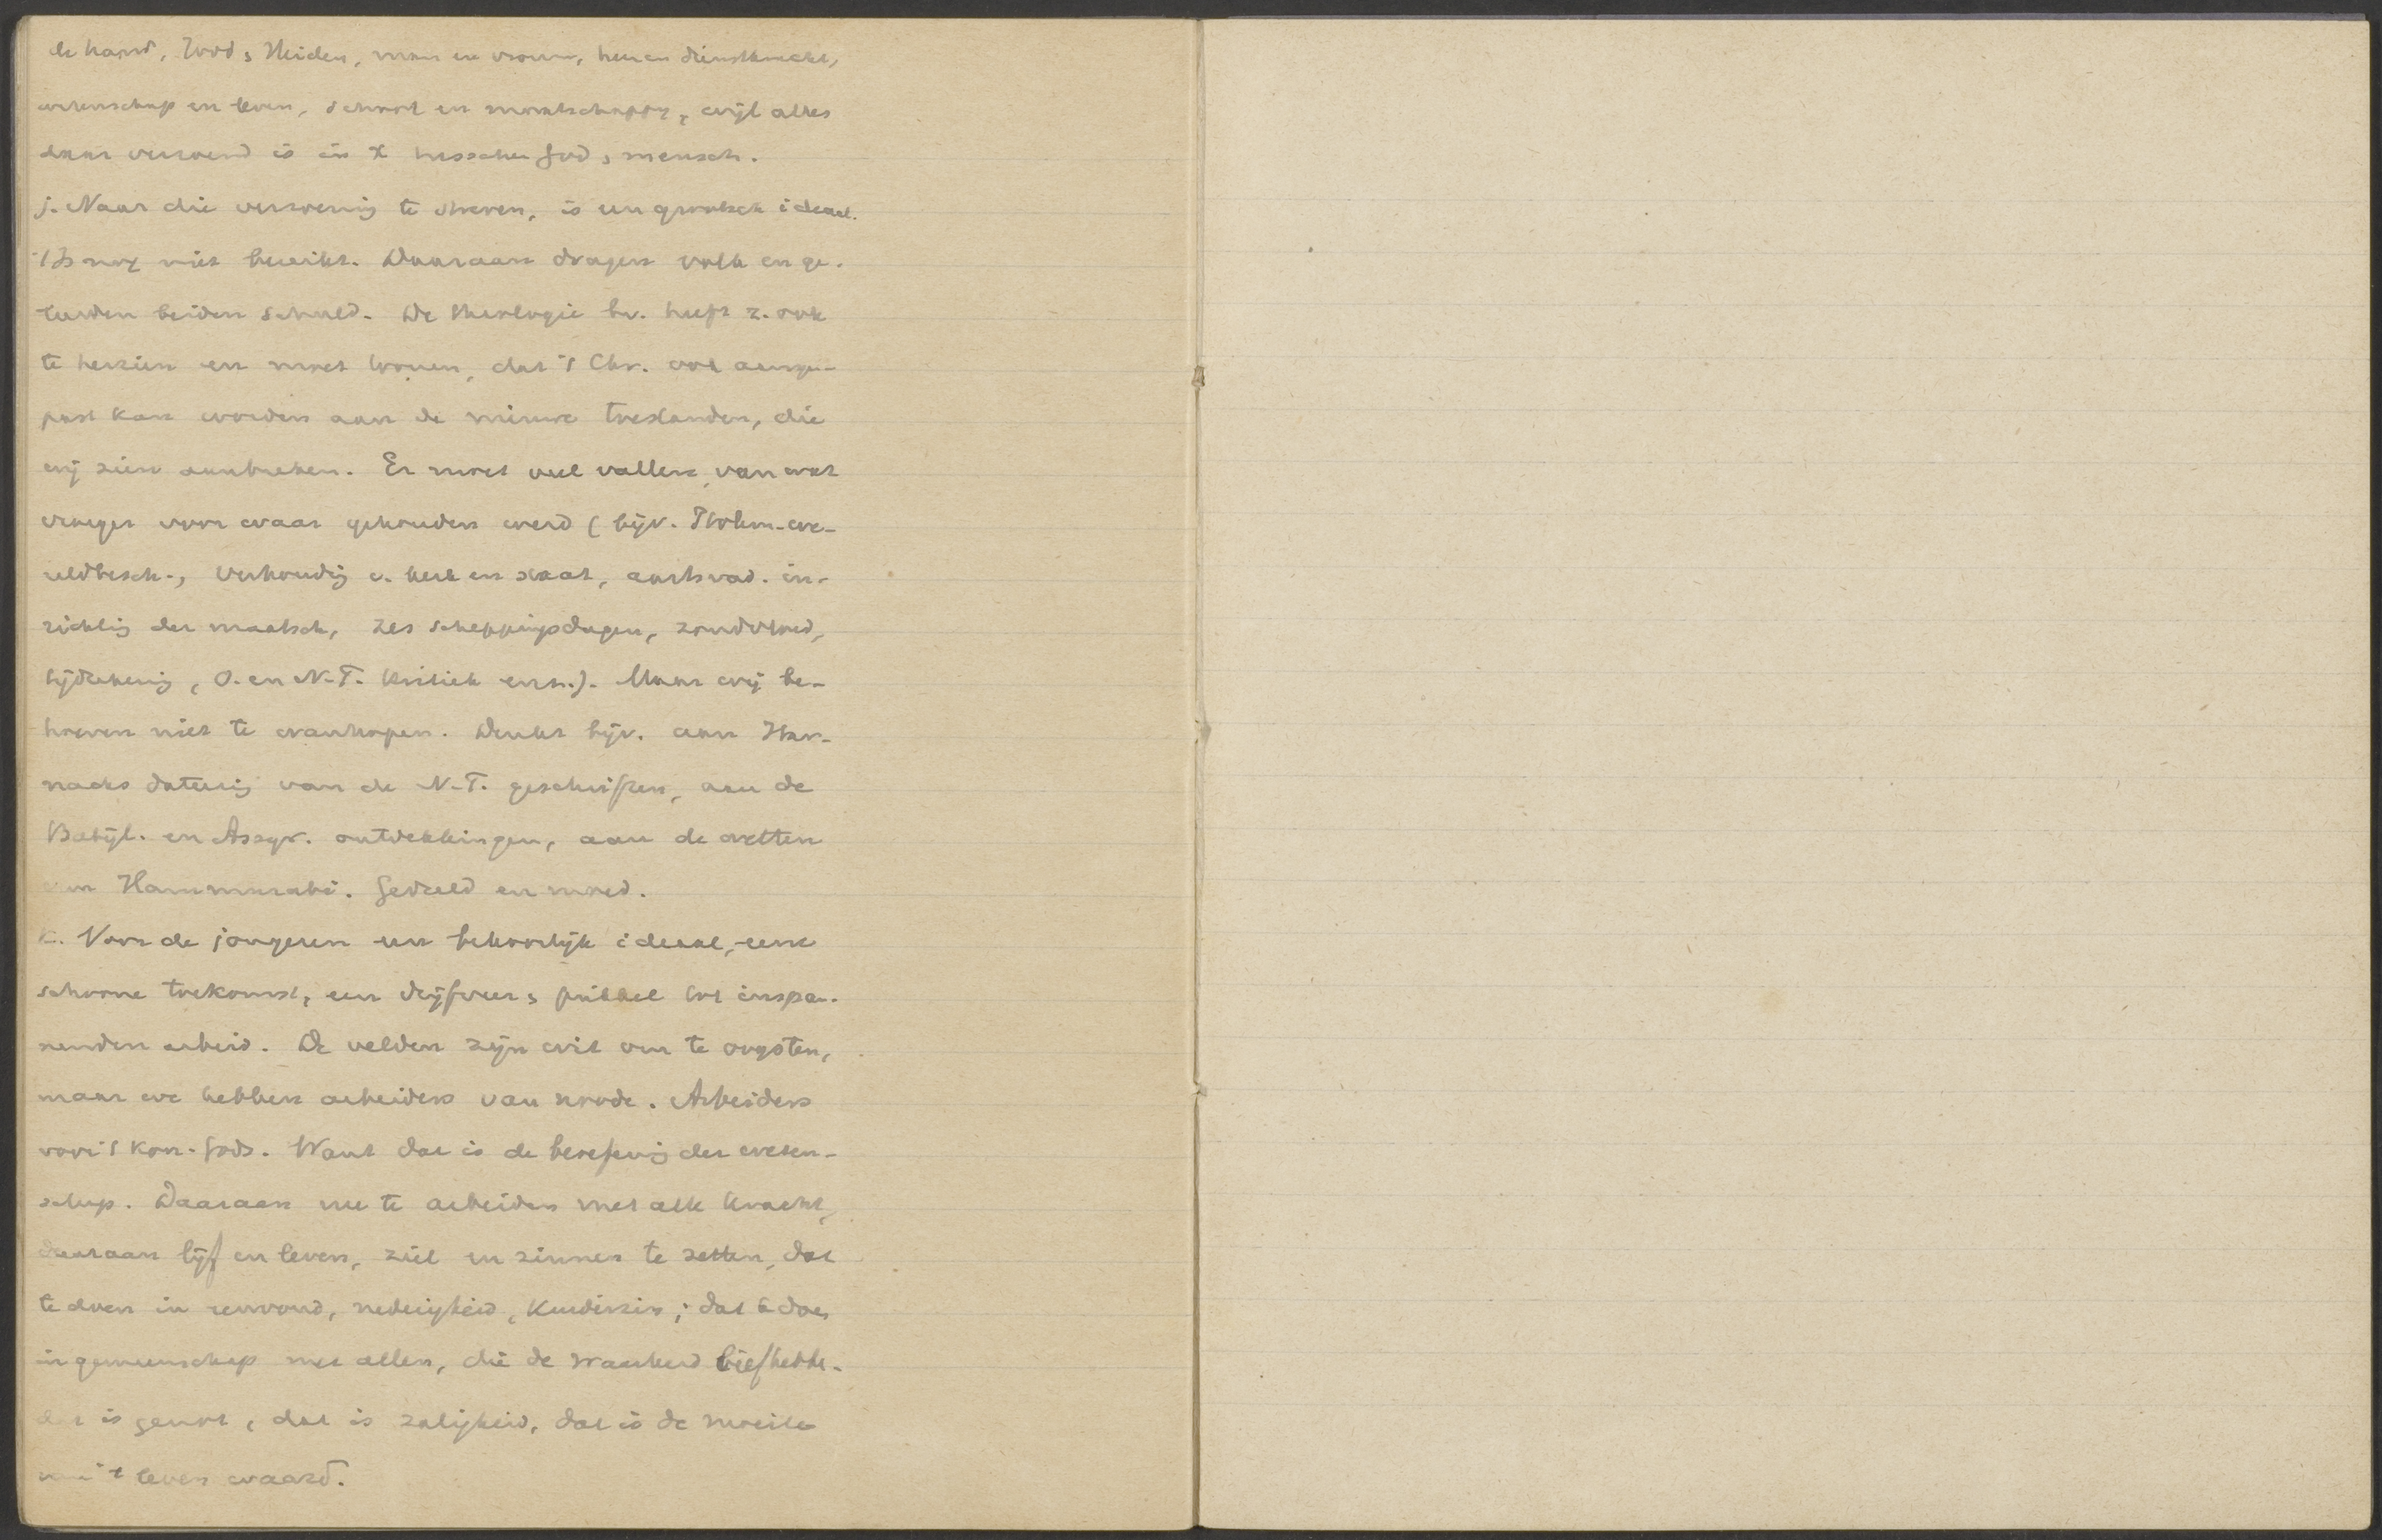 de hand, Jood & Heiden, man en vrouw, heer en dienstknecht,
wetenschap en leven, school en maatschappy, wijl alles
daar verzoend is in X tusschen God & mensch.
j. Naar die verzoening te streven, is een grootsch ideaal.
't Is nog niet bereikt. Daaraan dragen volk en ge-
leerden beiden schuld. De theologie bv. heeft z. ook
te herzien en moet toonen, dat 't Chr. ook aange-
past kan worden aan de nieuwe toestanden, die
wij zien aanbreken. Er moet veel vallen, van wat
vroeger voor waar gehouden werd (bijv. Ptolem. we-
reldbesch., verhouding v. kerk en staat, aartsvad. in-
richting der maatsch, zes scheppingsdagen, zondvloed,
tijdrekening, O. en N.T. kritiek enz.). Maar wij be-
hoeven niet te wanhopen. Denkt bijv. aan Har-
nacks datering van de N.T. geschriften, aan de
Babyl. en Assyr. ontdekkingen, aan de wetten
van Hammurabi. Geduld en moed.
k. Voor de jongeren een bekoorlijk ideaal, eene
schoone toekomst, een drijfveer & prikkel tot inspan-
nenden arbeid. De velden zijn wit om te oogsten,
maar we hebben arbeiders van noode. Arbeiders
voor 't Kon. Gods. Want dat is de beoefening der weten-
schap. Daaraan mee te arbeiden met alle kracht,
daaraan lijf en leven, ziel en zinnen te zetten, dat
te doen in eenvoud, nederigheid, kinderzin; dat te doen
in gemeenschap met allen, die de waarheid liefhebb.
dat is genot, dat is zaligheid, dat is de moeite
van 't leven waard.